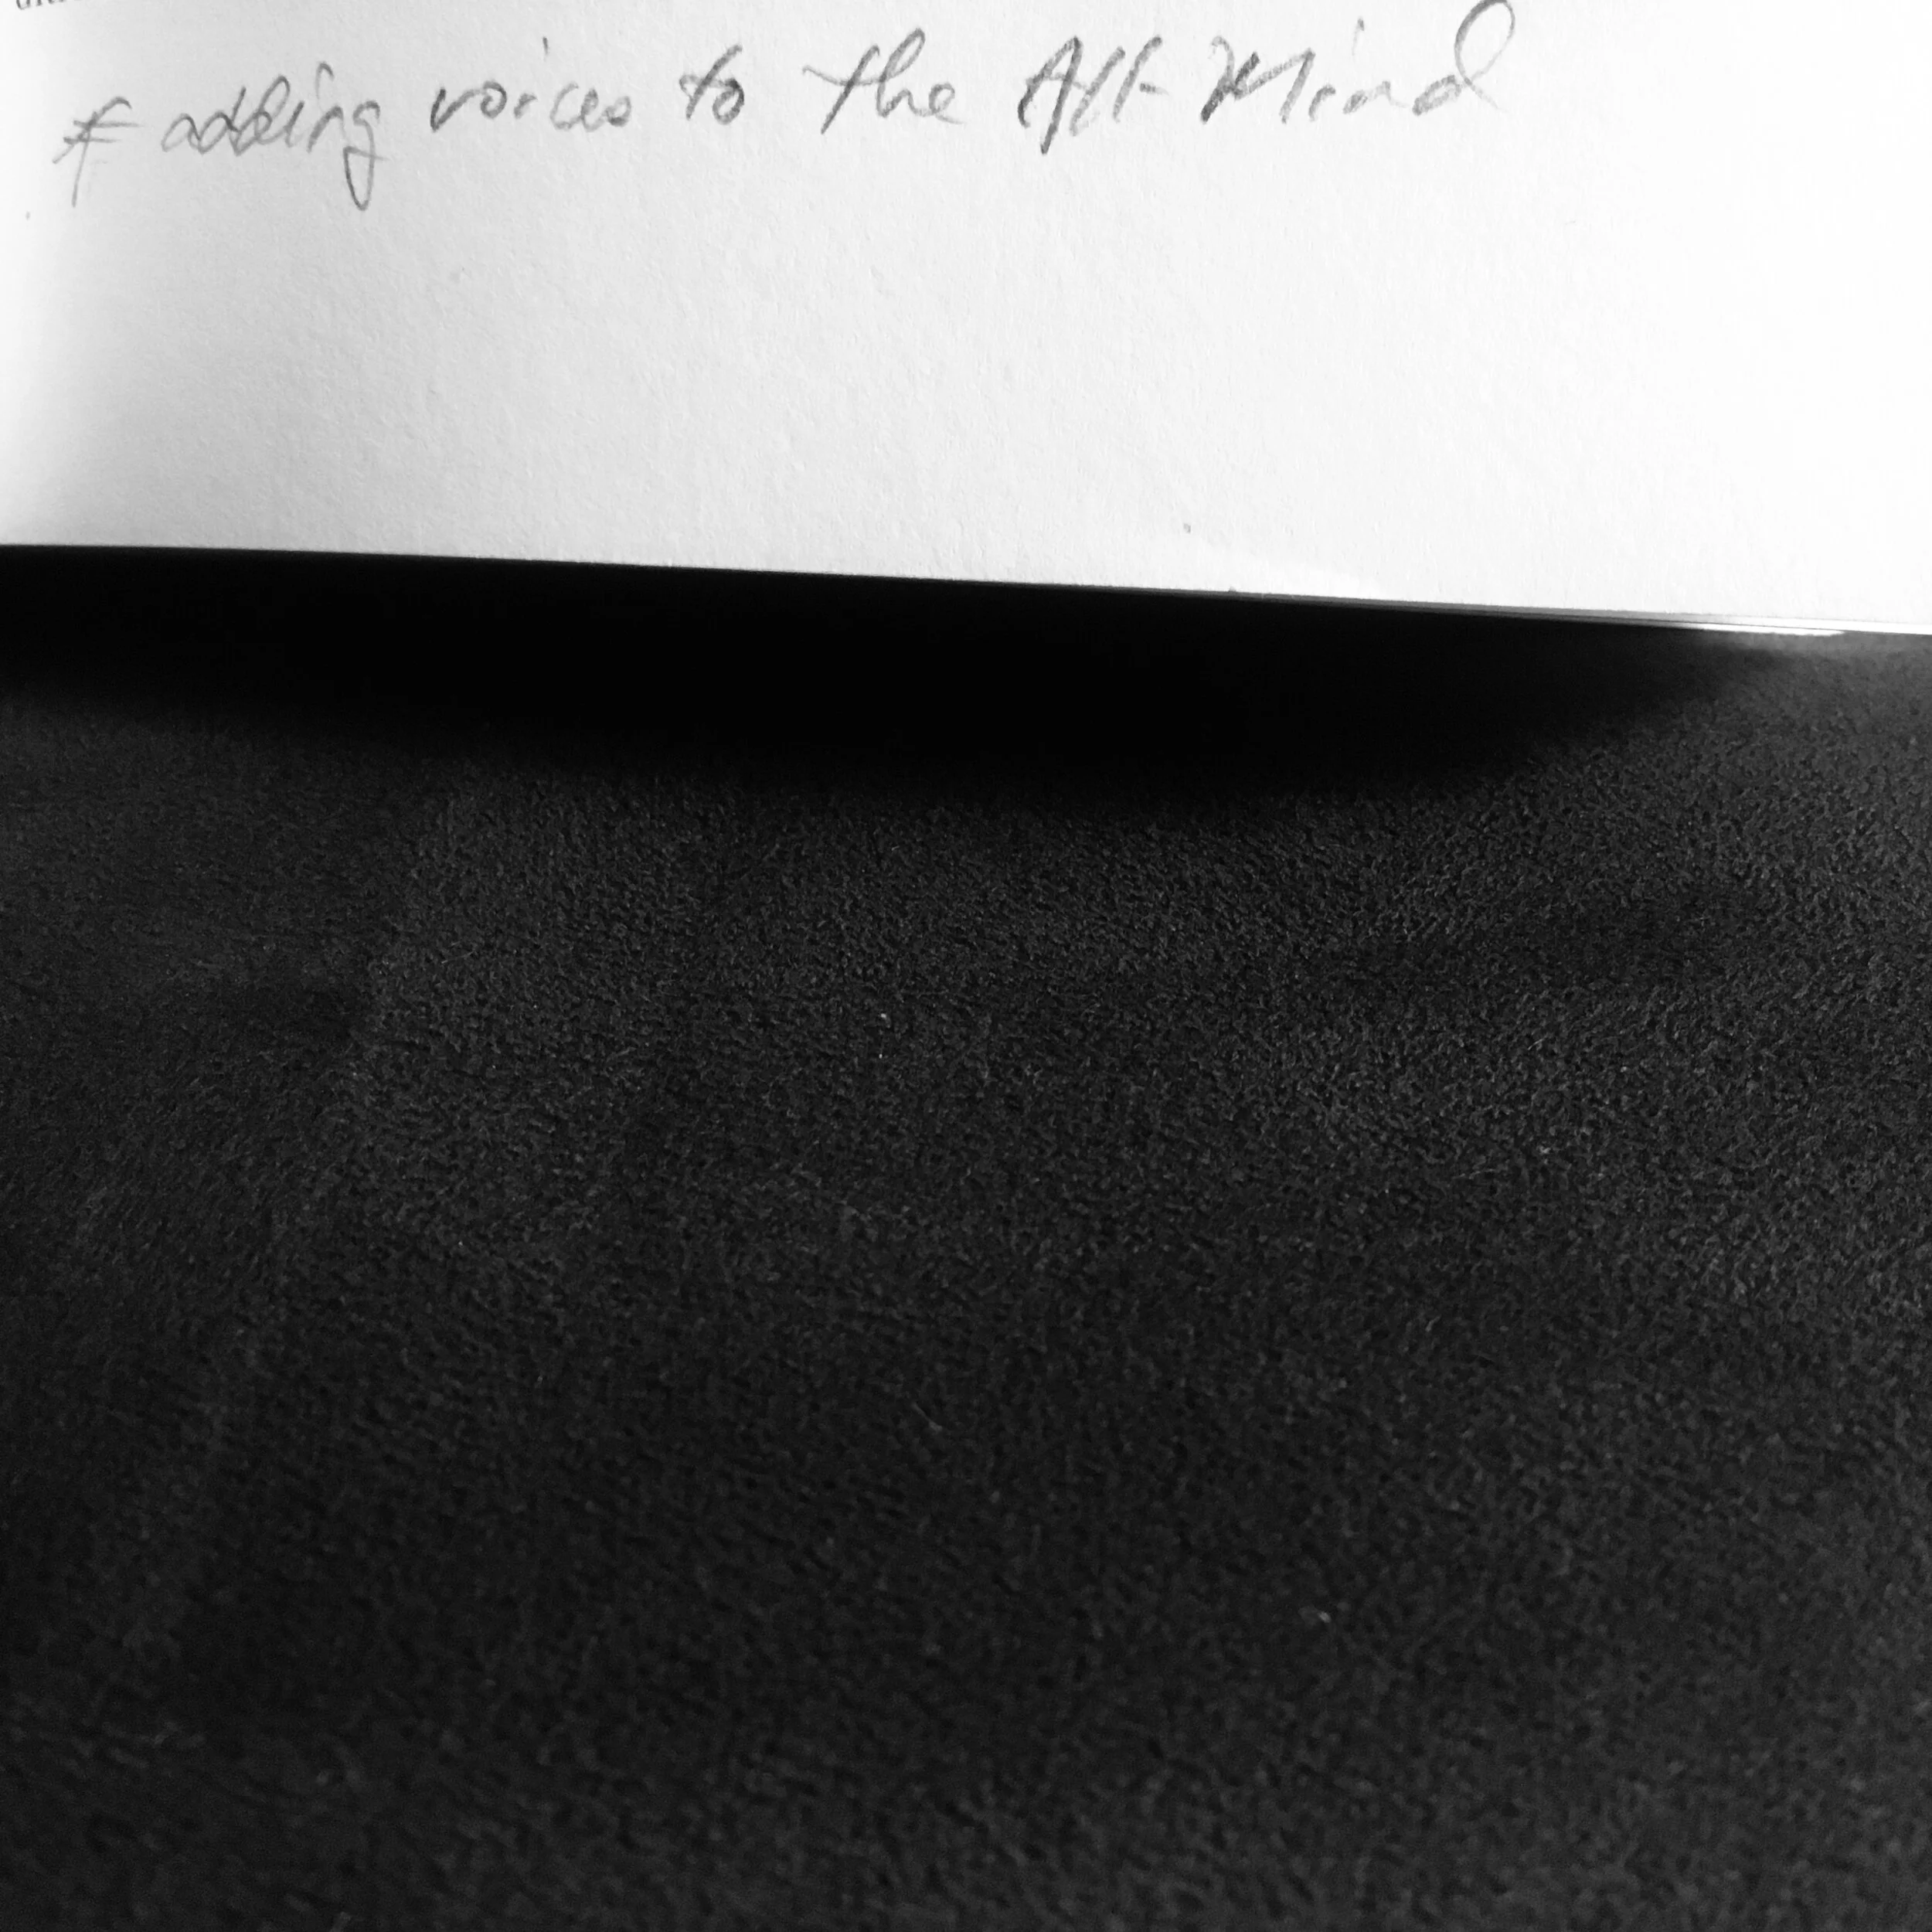 * adding voices to the All-Mind